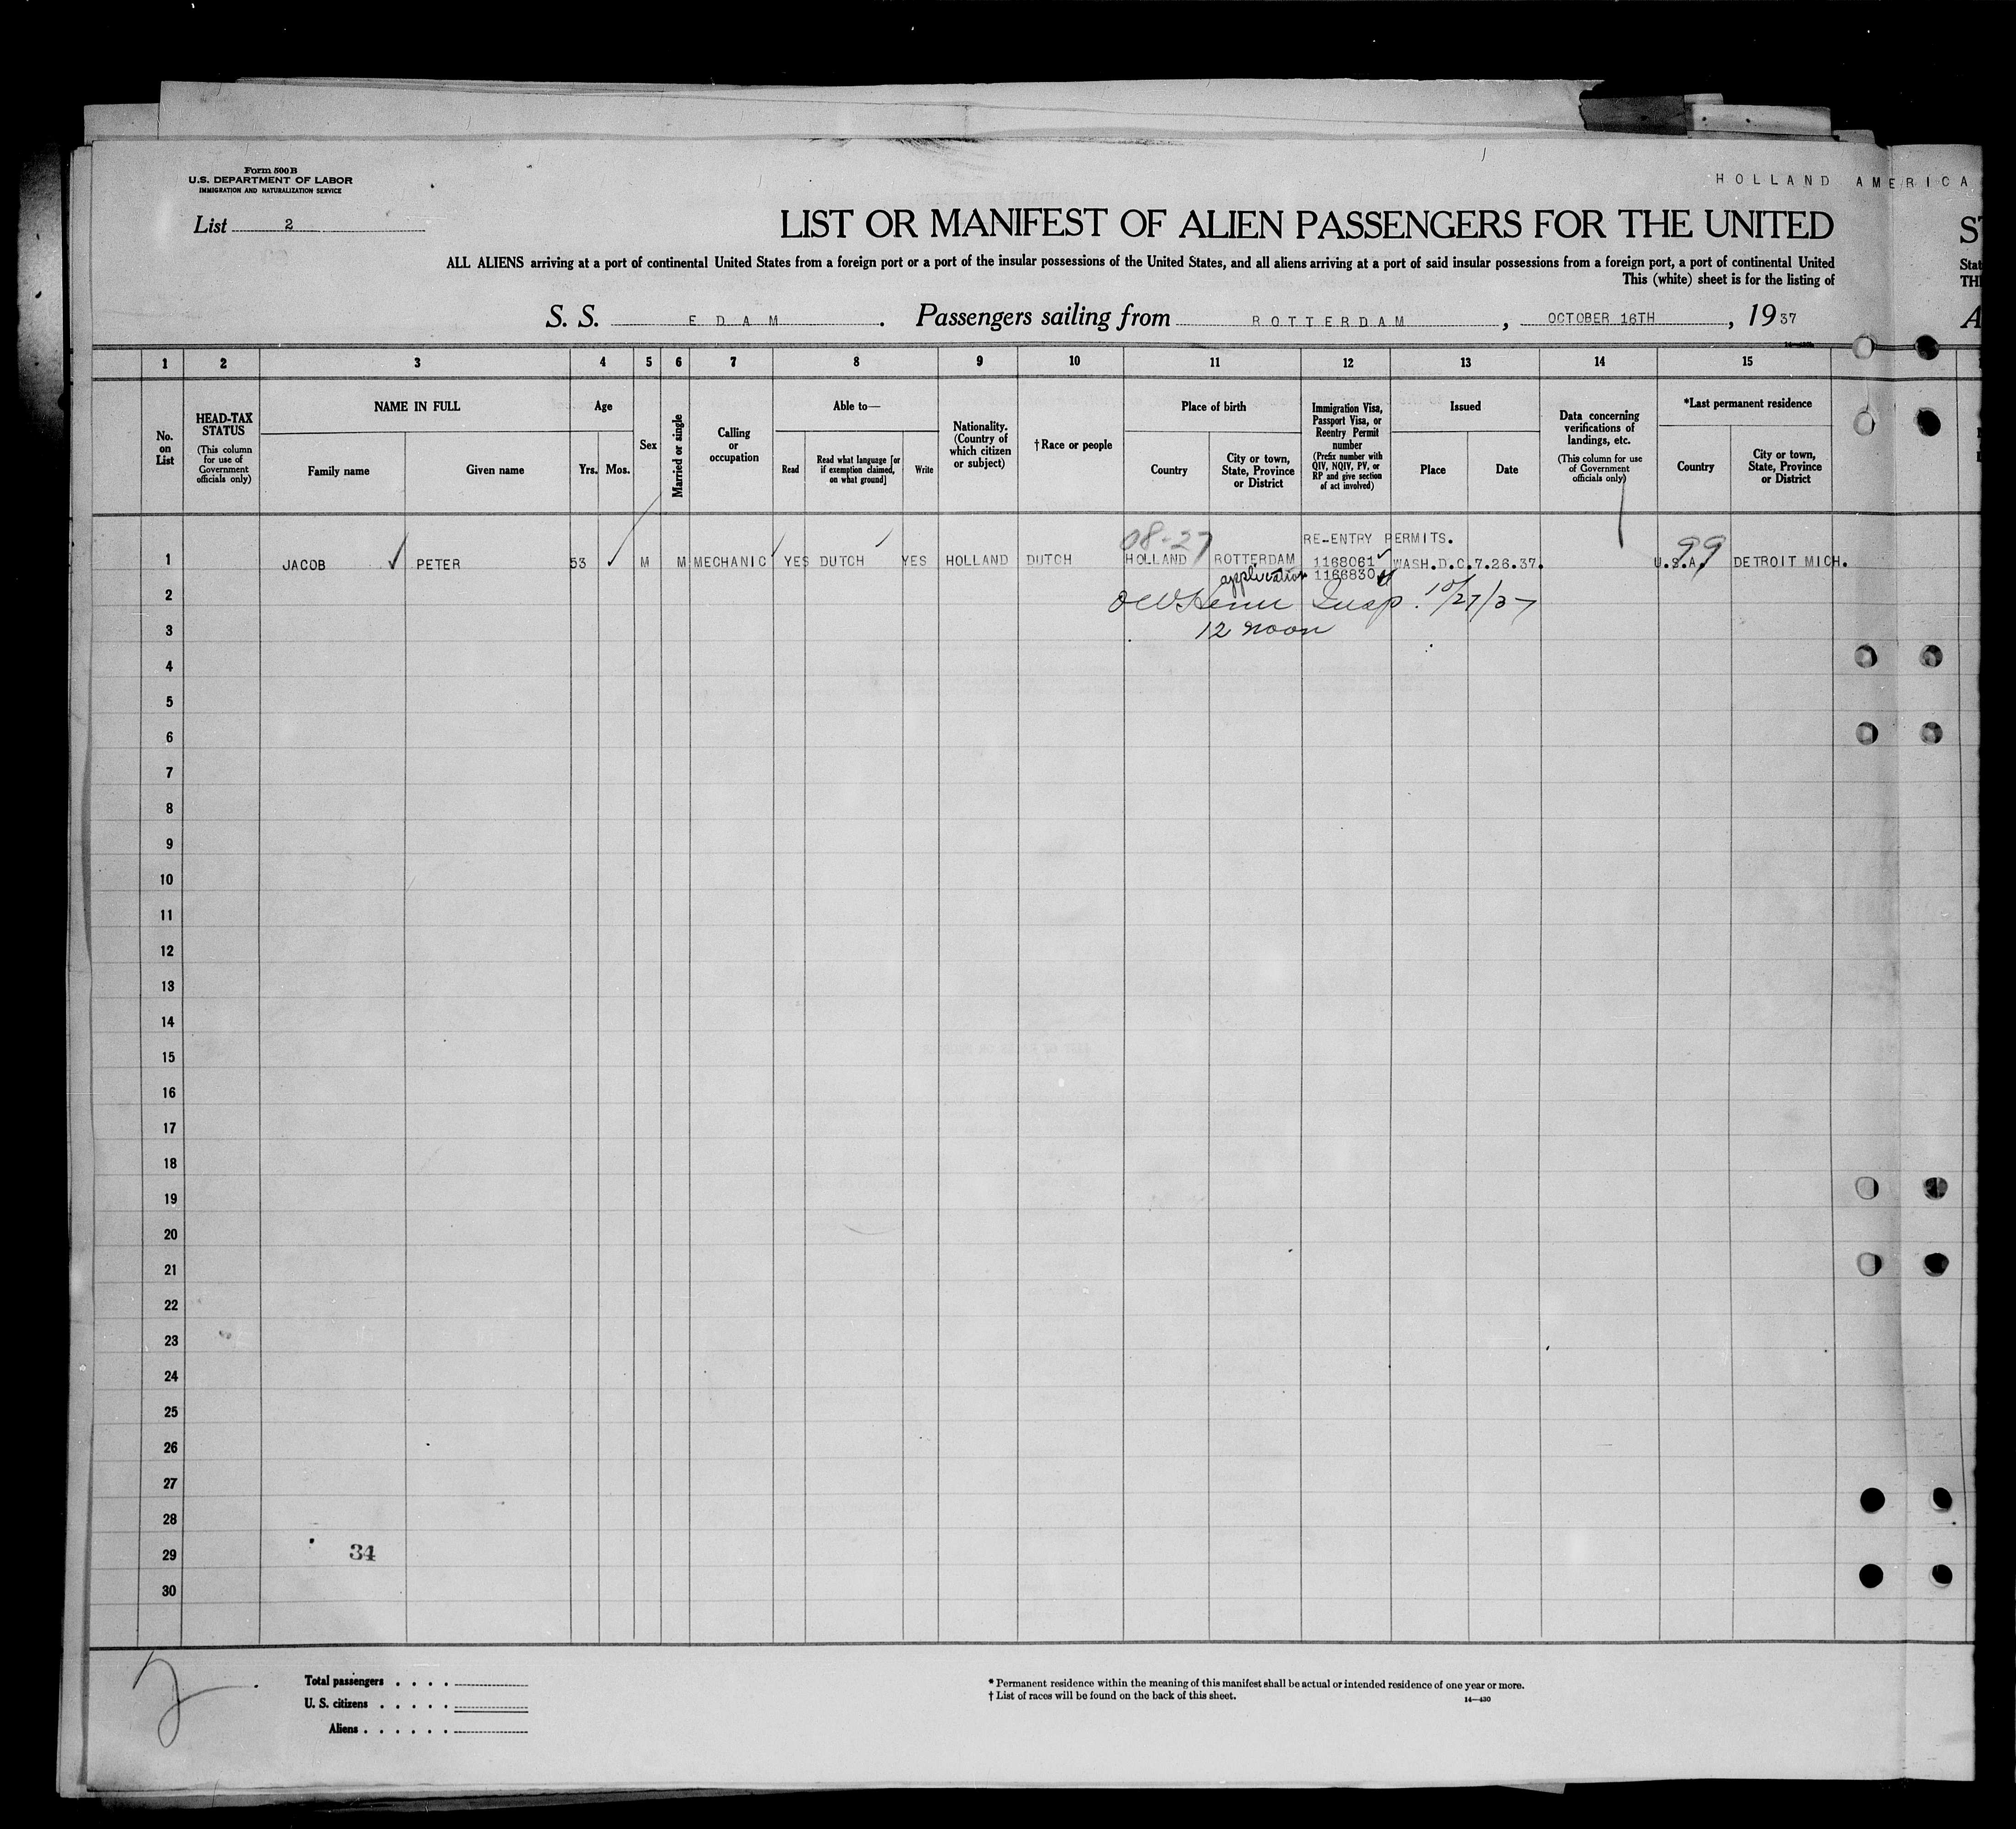 Form 500B
U.S. DEPARTMENT OF LABOR
IMMIGRATION AND NATURALIZATION SERVICE
HOLLAND AMERICA
List 2
LIST OR MANIFEST OF ALIEN PASSENGERS FOR THE UNITED
ALL ALIENS arriving at a port of continental United States from a foreign port or a port of the insular possessions of the United States, and all aliens arriving at a port of said insular possessions from a foreign port, a port of continental United
This (white) sheet is for the listing of
S. S. EDAM. Passengers sailing from ROTTERDAM, OCTOBER 16TH, 1937
1 2 3 4 5 6 7 8 9 10 11 12 13 14 15
No. on List
HEAD-TAX STATUS
(This column for use of Government officials only)
NAME IN FULL
Family name
Given name
Age
Yrs. Mos.
Sex
Married or single
Calling or occupation
Able to—
Read
Read what language [or if exemption claimed, on what ground]
Write
Nationality. (Country of which citizen or subject)
†Race or people
Place of birth
Country
City or town, State, Province or District
Immigration Visa, Passport Visa, or Reentry Permit number
(Prefix number with QIV, NQIV, PV, or RP and give section of act involved)
Issued
Place
Date
Data concerning verifications of landings, etc.
(This column for use of Government officials only)
*Last permanent residence
Country
City or town, State, Province or District
08-27 RE-ENTRY PERMITS. 99
1 JACOB PETER 53 M M MECHANIC YES DUTCH YES HOLLAND DUTCH HOLLAND ROTTERDAM 1168061 WASH.D.C. 7.26.37. U.S.A. DETROIT MICH.
application 1166830
2 Insp. 10/27/37
3 12 noon
4
5
6
7
8
9
10
11
12
13
14
15
16
17
18
19
20
21
22
23
24
25
26
27
28
29 34
30
2
Total passengers . . . .
U. S. citizens . . . . .
Aliens . . . . . .
* Permanent residence within the meaning of this manifest shall be actual or intended residence of one year or more.
† List of races will be found on the back of this sheet.
14—430